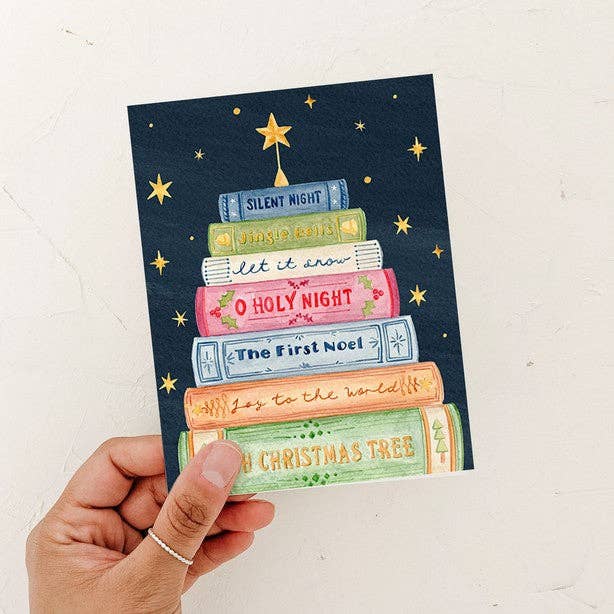 SILENT NIGHT
Jingle Bells
let it snow
O HOLY NIGHT
The First Noel
Joy to the World
H CHRISTMAS TREE